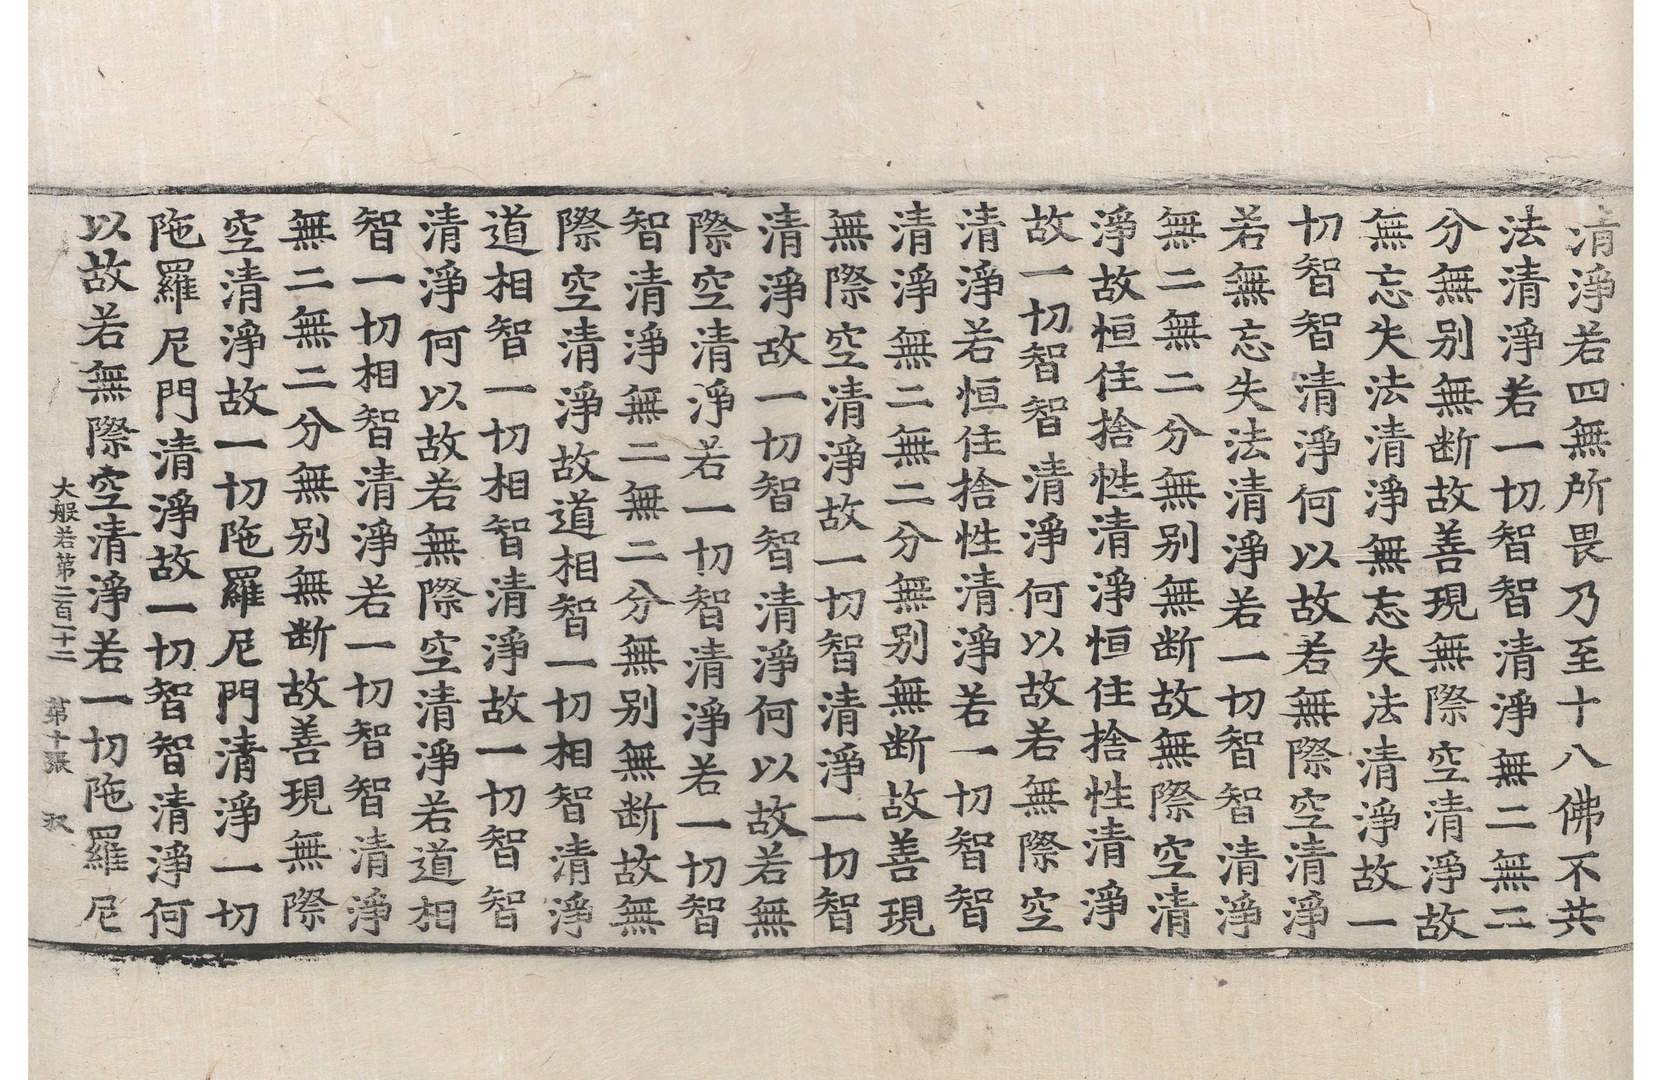 清淨若四無所畏乃至十八佛不共
法清淨若一切智智清淨無二無二
分無别無断故善現無際空清淨故
無忘失法清淨無忘失法清淨故一
切智智清淨何以故若無際空清淨
若無忘失法清淨若一切智智清淨
無二無二分無别無断故無際空清
淨故恒住捨性清淨恒住捨性清淨
故一切智智清淨何以故若無際空
清淨若恒住捨性清淨若一切智智
清淨無二無二分無别無断故善現
無際空清淨故一切智清淨一切智
清淨故一切智智清淨何以故若無
際空清淨若一切智清淨若一切智
智清淨無二無二分無别無断故無
際空清淨故道相智一切相智清淨
道相智一切相智清淨故一切智智
清淨何以故若無際空清淨若道相
智一切相智清淨若一切智智清淨
無二無二分無别無断故善現無際
空清淨故一切陁羅尼門清淨一切
陁羅尼門清淨故一切智智清淨何
以故若無際空清淨若一切陁羅尼
大般若第二百二十二 第十張 収